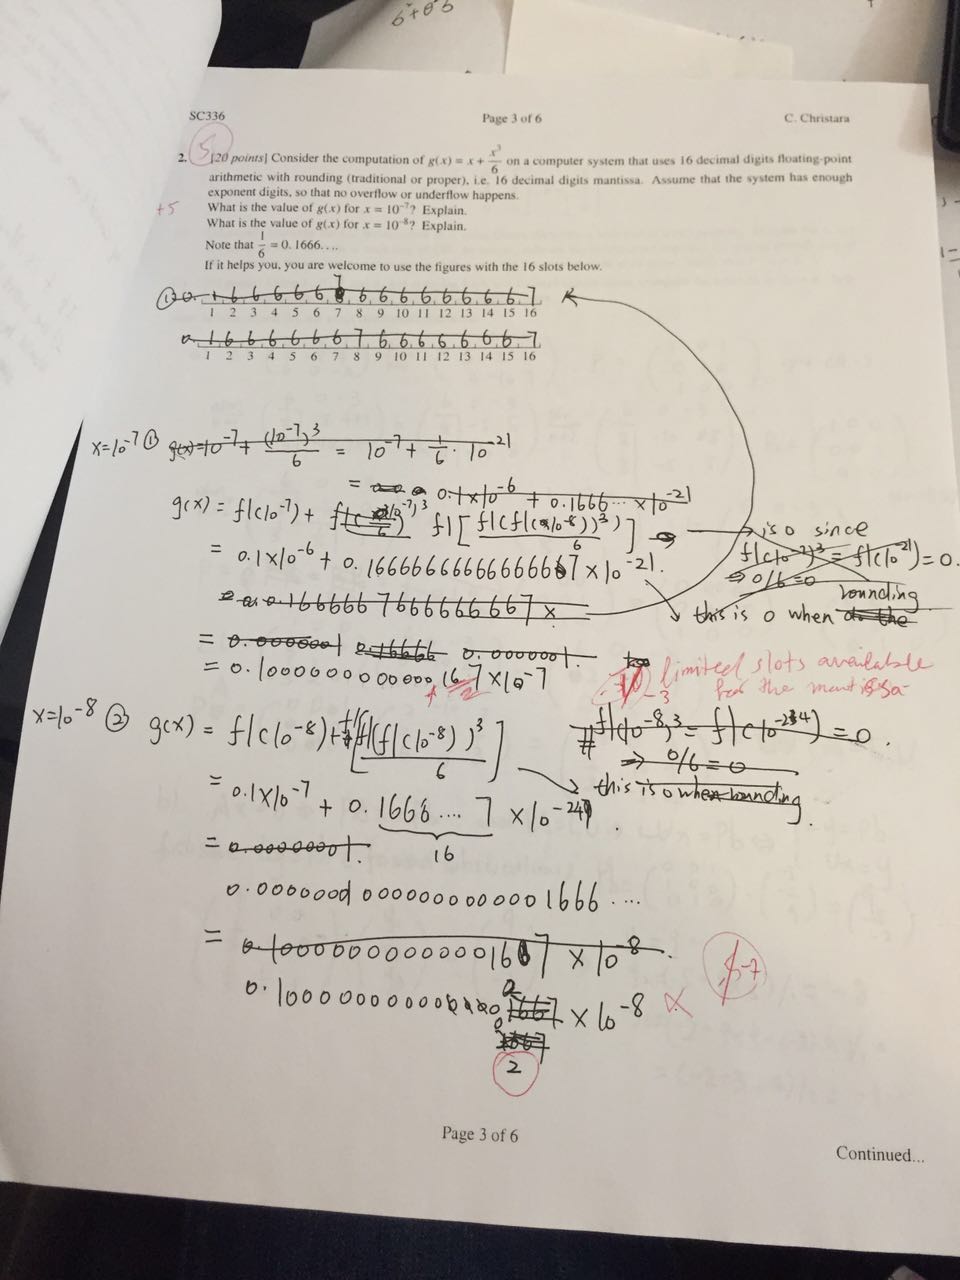 6 + 0 6
SC336 Page 3 of 6 C. Christara
5
2. [20 points] Consider the computation of g(x) = x + x³/6 on a computer system that uses 16 decimal digits floating-point
arithmetic with rounding (traditional or proper), i.e. 16 decimal digits mantissa. Assume that the system has enough
exponent digits, so that no overflow or underflow happens.
+5 What is the value of g(x) for x = 10⁻⁷? Explain.
What is the value of g(x) for x = 10⁻⁸? Explain.
Note that 1/6 = 0.1666....
If it helps you, you are welcome to use the figures with the 16 slots below.
① 0. 1 6 6 6 6 6 7 6 6 6 6 6 6 6 6 7
1 2 3 4 5 6 7 8 9 10 11 12 13 14 15 16
0. 1 6 6 6 6 6 6 7 6 6 6 6 6 6 6 7
1 2 3 4 5 6 7 8 9 10 11 12 13 14 15 16
x=10⁻⁷ ① g(x)=10⁻⁷ + (10⁻⁷)³/6 = 10⁻⁷ + 1/6 · 10⁻²¹
= 0.1x10⁻⁶ + 0.1666... x10⁻²¹
g(x) = fl(10⁻⁷) + fl[fl(fl(10⁻⁸))³)/6] → is 0 since
fl(10⁻⁷)³ = fl(10⁻²¹) = 0.
= 0.1x10⁻⁶ + 0.1666666666666667 x10⁻²¹.
⇒ 0/6 = 0
rounding
= 0.166666 7666666667 x
this is 0 when do the
= 0.0000001 0.16666 0.0000001.
= 0.1000000000000167 x10⁻⁷
-3 limited slots available
for the mantissa
x=10⁻⁸ ② g(x) = fl(10⁻⁸) + fl[fl(fl(10⁻⁸))³/6]
fl(10⁻⁸)³ = fl(10⁻²⁴) = 0.
⇒ 0/6 = 0
this is 0 when rounding.
= 0.1x10⁻⁷ + 0.1666....7 x10⁻²⁴.
16
= 0.00000001.
0.00000001 000000000000 1666 ....
= 0.1000000000000167 x 10⁻⁸.
-7
0.1000000000000000 1667 x 10⁻⁸ x
2
1667
2
Page 3 of 6
Continued...